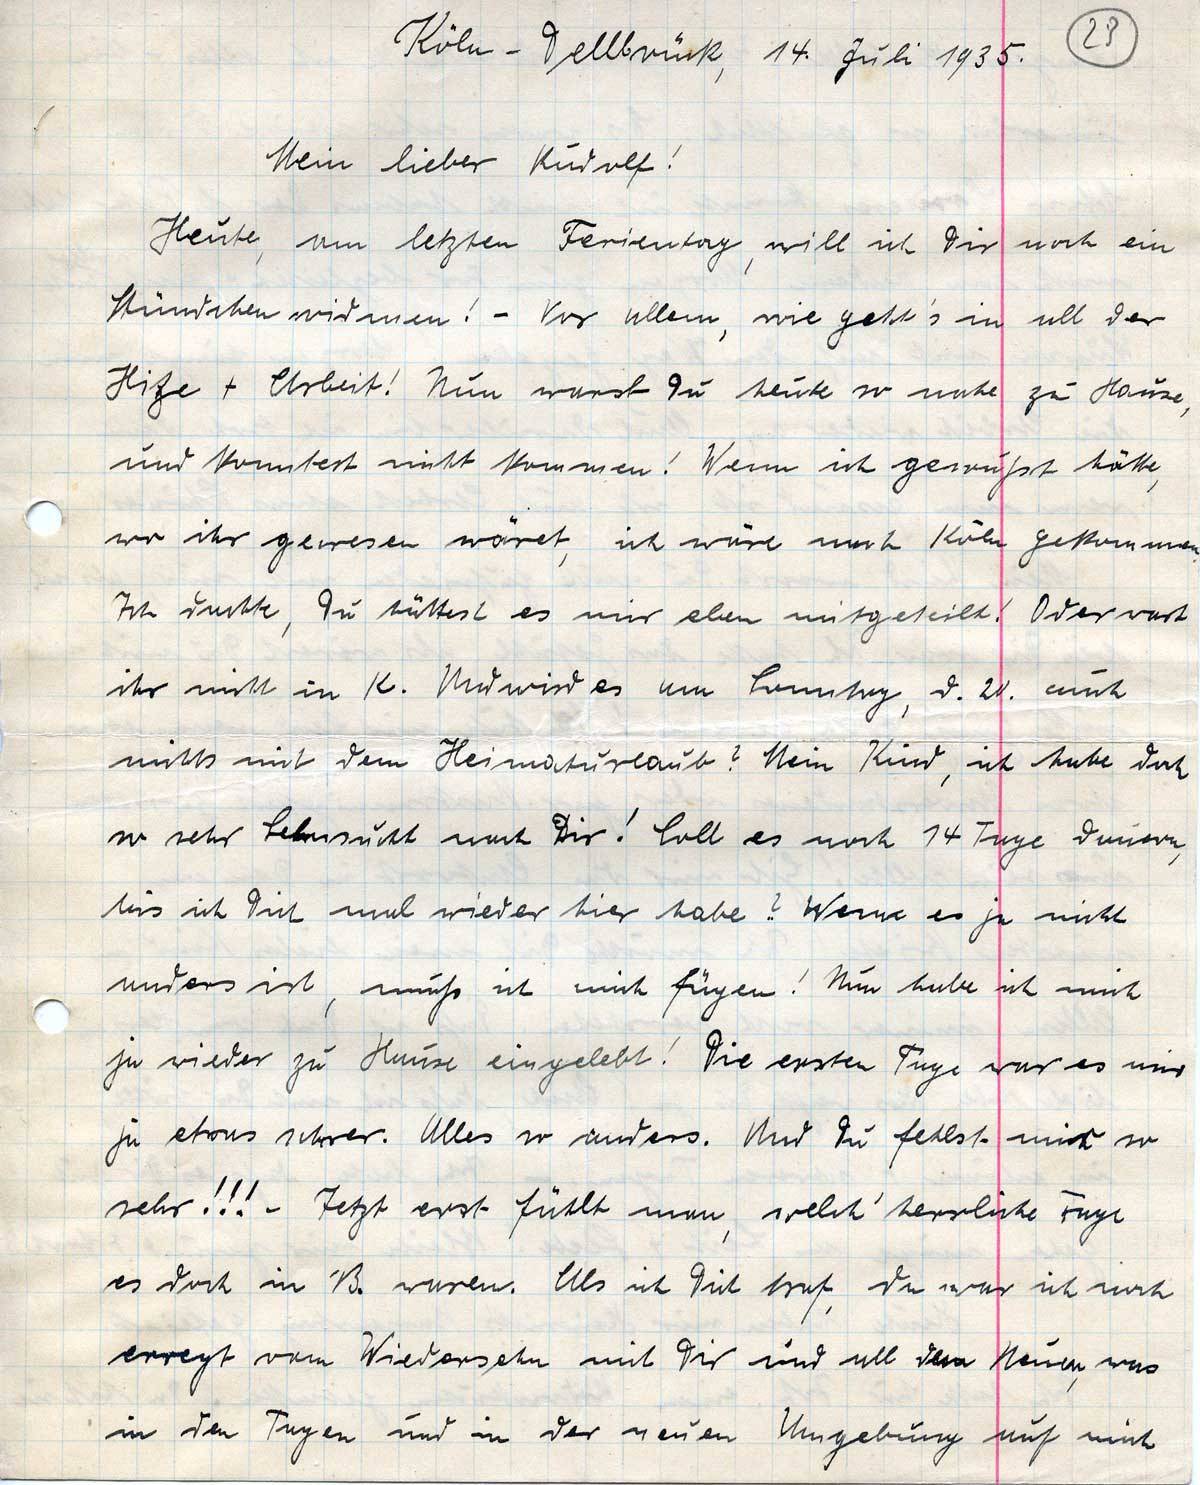 28
Köln-Dellbrück, 14. Juli 1935.
Mein lieber Rudolf!
Heute, am letzten Ferientag, will ich Dir noch ein
Stündchen widmen! - Vor allem, wie geht's in all der
Hitze + Arbeit! Nun warst Du heute so nahe zu Hause,
und konntest nicht kommen! Wenn ich gewußt hätte,
wo ihr gewesen wäret, ich wäre nach Köln gekommen.
Ich dachte, Du hättest es mir eben mitgeteilt! Oder wart
ihr nicht in K. Und wird es am Sonntag, d. 21. auch
nichts mit dem Heimaturlaub? Mein Kind, ich habe doch
so sehr Sehnsucht nach Dir! Soll es noch 14 Tage dauern,
bis ich Dich mal wieder hier habe? Wenn es ja nicht
anders ist, muß ich mich fügen! Nun habe ich mich
ja wieder zu Hause eingelebt! Die ersten Tage war es mir
ja etwas schwer. Alles so anders. Und Du fehlst mir so
sehr!!! - Jetzt erst fühlt man, welch' herrliche Tage
es doch in B. waren. Als ich Dich traf, da war ich noch
erregt vom Wiedersehn mit Dir und all dem Neuen, was
in den Tagen und in der neuen Umgebung auf mich